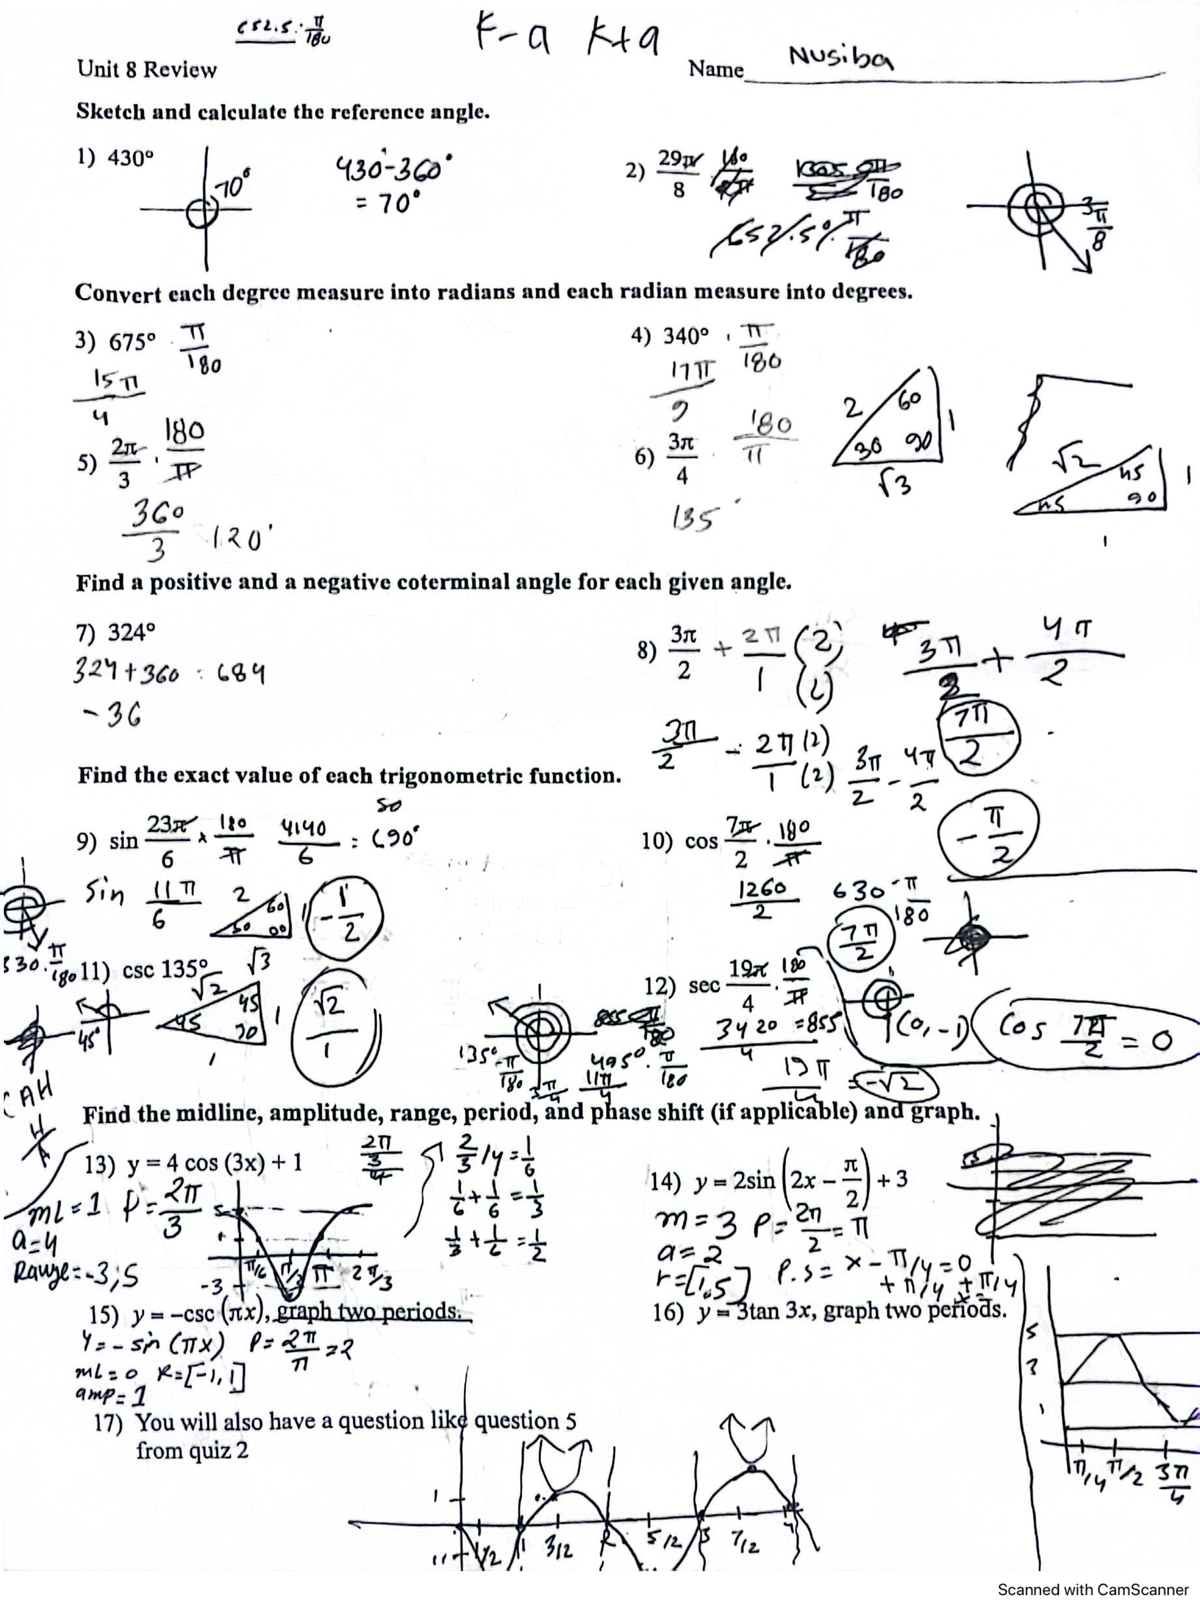 652.5 · π/180
K-a K+a
Unit 8 Review Name Nusiba
Sketch and calculate the reference angle.
1) 430° 70° 430-360° = 70°
2) 29π/8 3π/8
Convert each degree measure into radians and each radian measure into degrees.
3) 675° · π/180
15π/4
4) 340° · π/180
17π/9
5) 2π/3 · 180/π
360/3 120°
6) 3π/4 · 180/π
135°
2 60 30 90 1 √3
√2 45 45 90 1 1
Find a positive and a negative coterminal angle for each given angle.
7) 324°
324+360 = 684
-36
8) 3π/2 + 2π/1 (2)/(2) 3π/2 + 4π/2
7π/2
3π/2 - 2π(2)/1(2) 3π/2 - 4π/2
-π/2
Find the exact value of each trigonometric function.
9) sin 23π/6 × 180/π 4140/6 = 690°
sin 11π/6 2 60 30 90 √3 -1/2
330 · π/180
10) cos 7π/2 · 180/π
1260/2 630 · π/180
7π/2
(0,-1) cos 7π/2 = 0
11) csc 135° √2 45 45 90 1 1 √2/1
45°
CAH
12) sec 19π/4 · 180/π
3420/4 = 855
19π/4 = -√2
135° · π/180 495° · π/180 11π/4
Find the midline, amplitude, range, period, and phase shift (if applicable) and graph.
13) y = 4 cos (3x) + 1
mL=1 P=2π/3
a=4
Range=-3,5
2/3/4=1/6
1/6+1/6=1/3
1/3+1/6=1/2
5 -3 π/6 π/3 π 2π/3
14) y = 2sin (2x - π/2) + 3
m=3 P=2π/2=π
a=2
r=[1,5] P.S= x-π/4=0
+π/4 +π/4
15) y = -csc (πx), graph two periods.
y=-sin(πx) P=2π/π=2
mL=0 R=[-1,1]
amp=1
16) y = 3tan 3x, graph two periods.
5
3
1
π/4 π/2 3π/4
17) You will also have a question like question 5
from quiz 2
1
1/2 1 3/2 2 5/2 3 7/2 4
Scanned with CamScanner